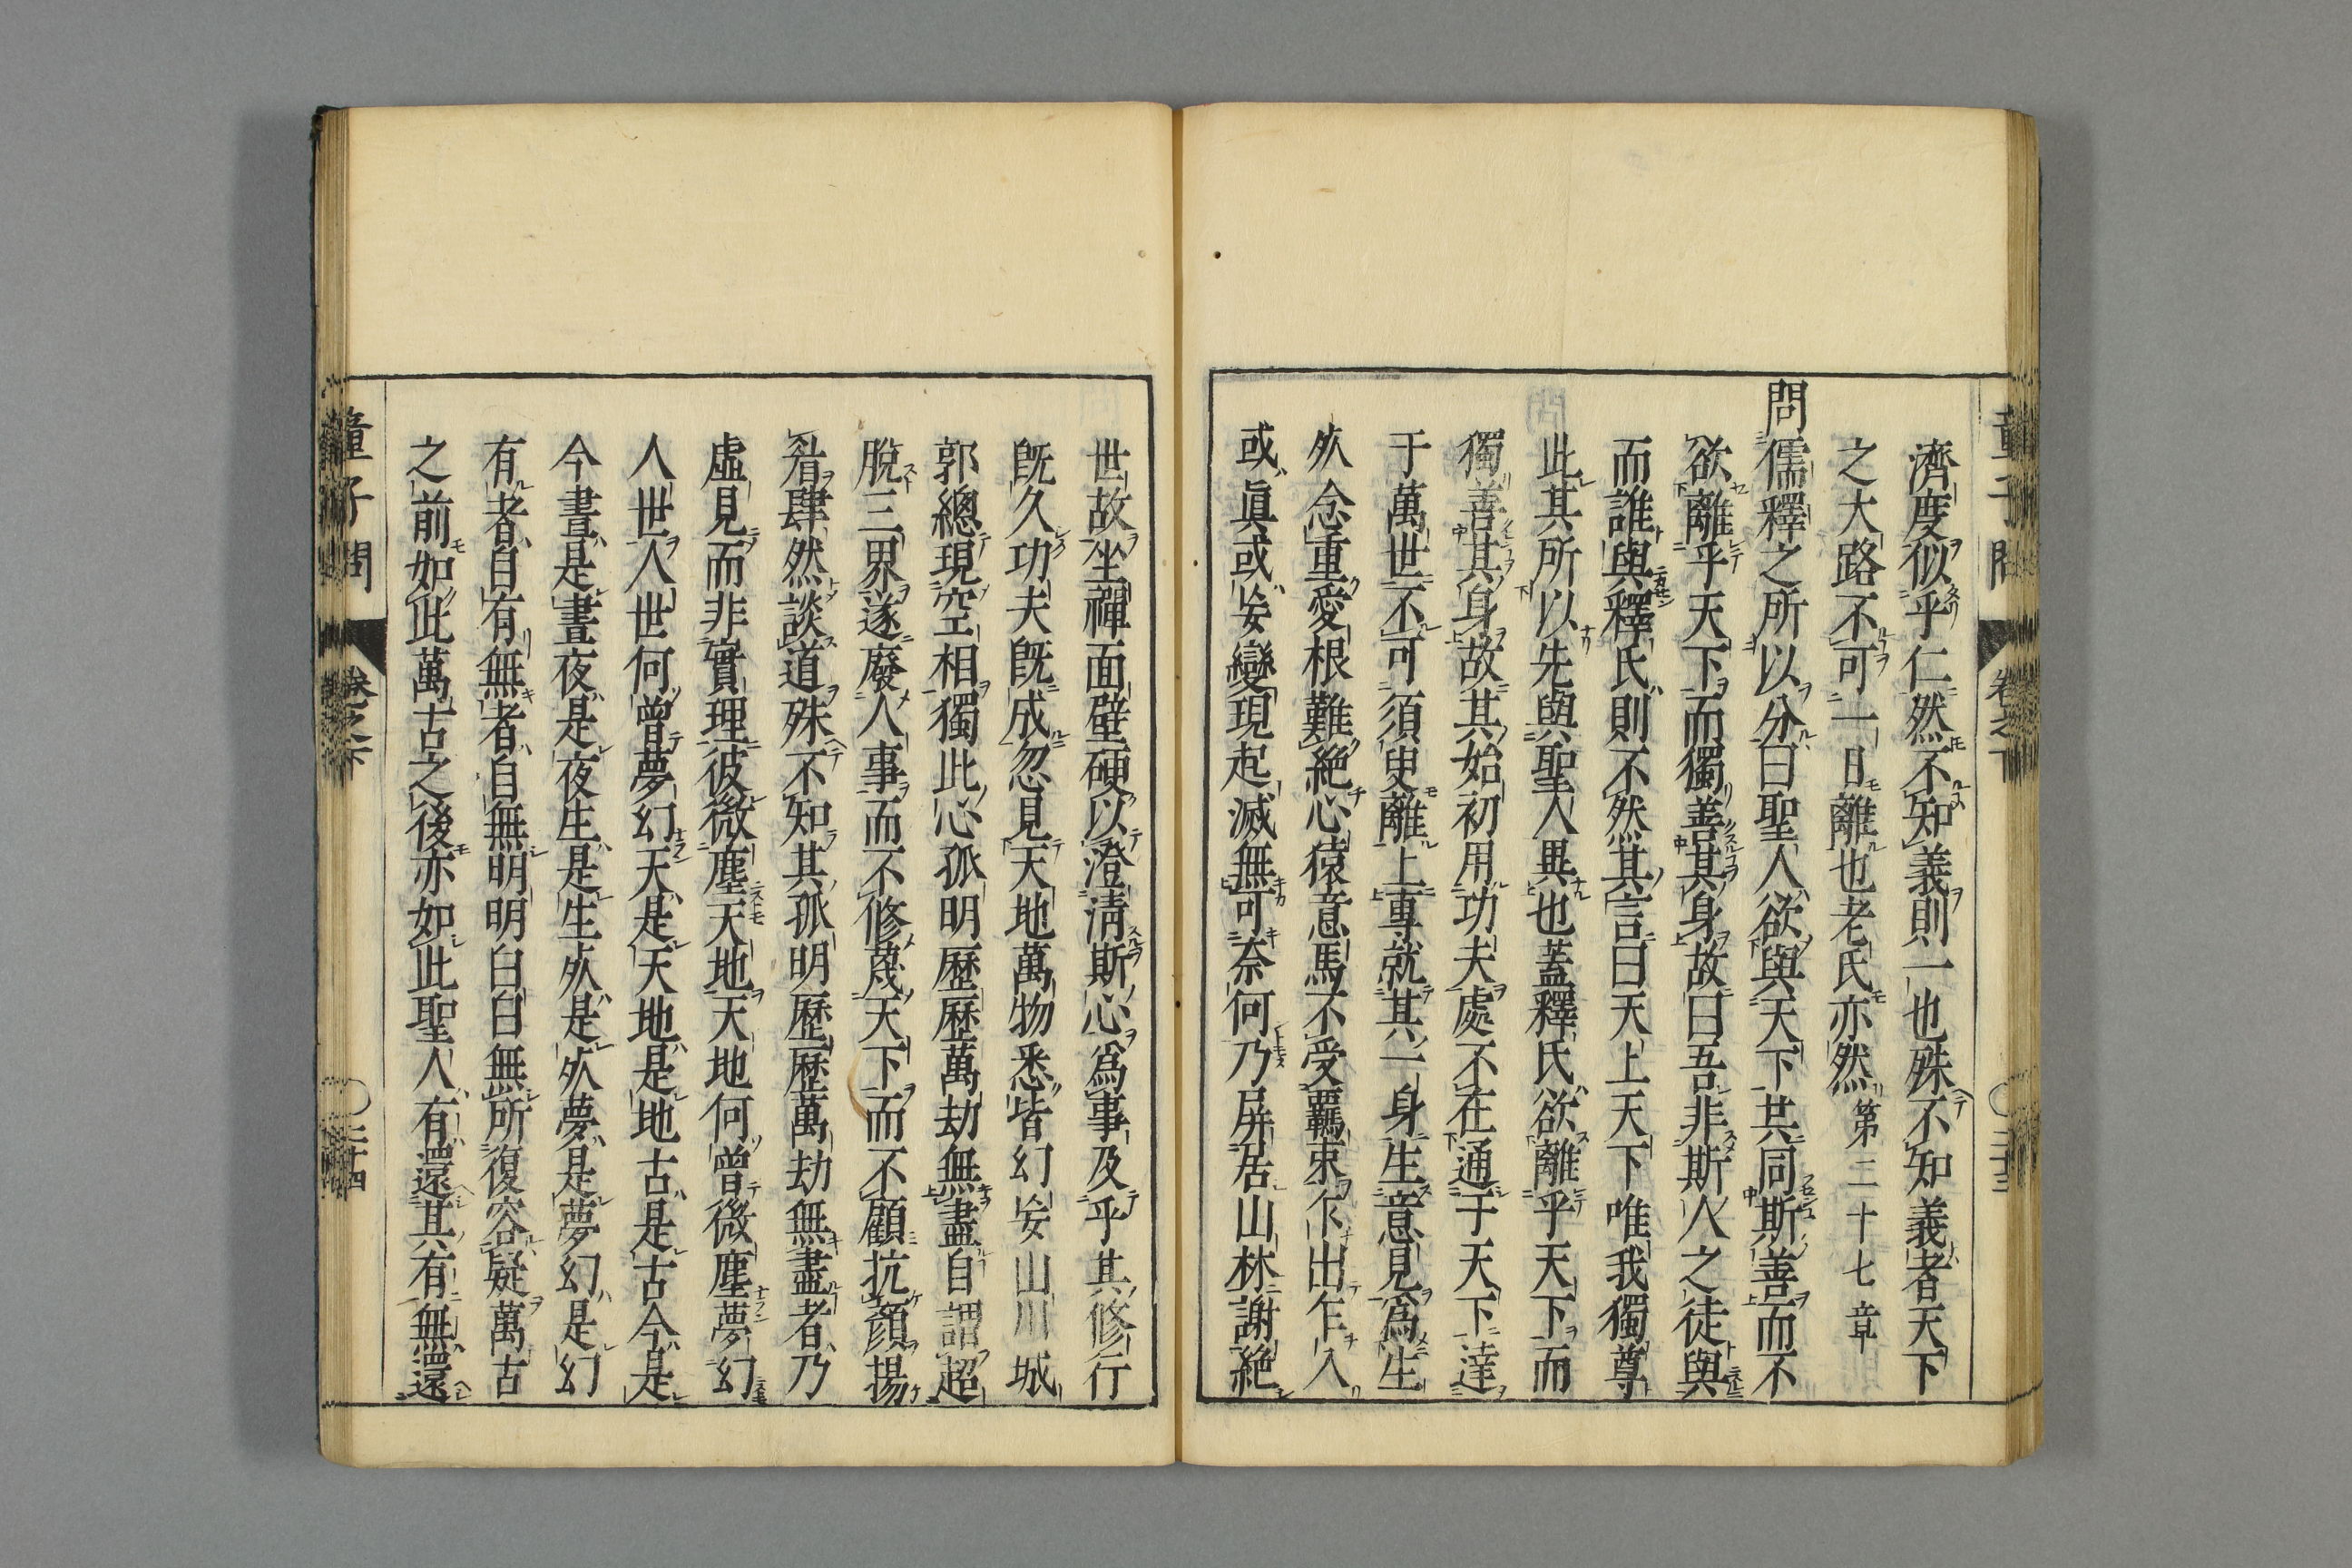 濟度似乎仁然不知義則一也殊不知義者天下
之大路不可一日離也老氏亦然 第二十七章
問儒釋之所以分曰聖人欲與天下共同斯善而不
欲離乎天下而獨善其身故曰吾非斯人之徒與
而誰與釋氏則不然其言曰天上天下唯我獨尊
此其所以先與聖人異也蓋釋氏欲離乎天下而
獨善其身故其始初用功夫處不在通于天下達
于萬世不可須臾離上專就其一身生意見爲生
死念重愛根難絕心猿意馬不受羈束乍出乍入
或眞或妄變現起滅無可奈何乃屏居山林謝絶
世故坐禪面壁硬以澄清斯心爲事及乎其修行
旣久功夫旣成忽見天地萬物悉皆幻妄山川城
郭總現空相獨此心孤明歷歷萬劫無盡自謂超
脫三界遂廢人事而不修蔑天下而不顧抗顏揚
眉肆然談道殊不知其孤明歷歷萬劫無盡者乃
虛見而非實理彼微塵天地天地何曾微塵夢幻
人世人世何曾夢幻天是天地是地古是古今是
今晝是晝夜是夜生是生死是死夢是夢幻是幻
有者自有無者自無明明白白無所復容疑萬古
之前如此萬古之後亦如此聖人有還其有無還
童子問 卷之下 三十四